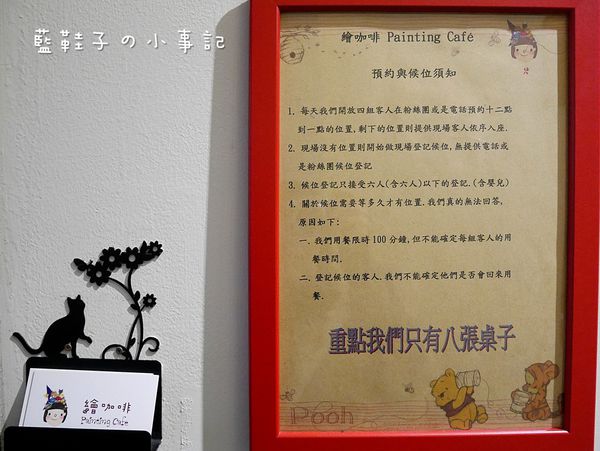 藍鞋子の小事記
繪咖啡 Painting Café
預約與候位須知
1. 每天我們開放四組客人在粉絲團或是電話預約十二點
到一點的位置,剩下的位置則提供現場客人依序入座.
2. 現場沒有位置則開始做現場登記候位,無提供電話或
是粉絲團候位登記
3. 候位登記只接受六人(含六人)以下的登記.(含嬰兒)
4. 關於候位需要等多久才有位置.我們真的無法回答,
原因如下:
一. 我們用餐限時100分鐘,但不能確定每組客人的用
餐時間.
二. 登記候位的客人.我們不能確定他們是否會回來用
餐.
重點我們只有八張桌子
Pooh
繪咖啡
Painting Cafe